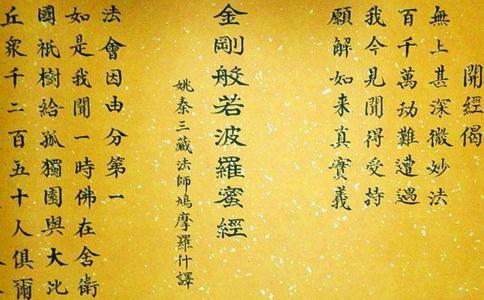 開經偈
無上甚深微妙法
百千萬劫難遭遇
我今見聞得受持
願解如来真實義
金剛般若波羅蜜經
姚秦三藏法師鳩摩羅什譯
法會因由分第一
如是我聞一時佛在舍衛
國祇樹給孤獨園與大比
丘衆千二百五十人俱爾